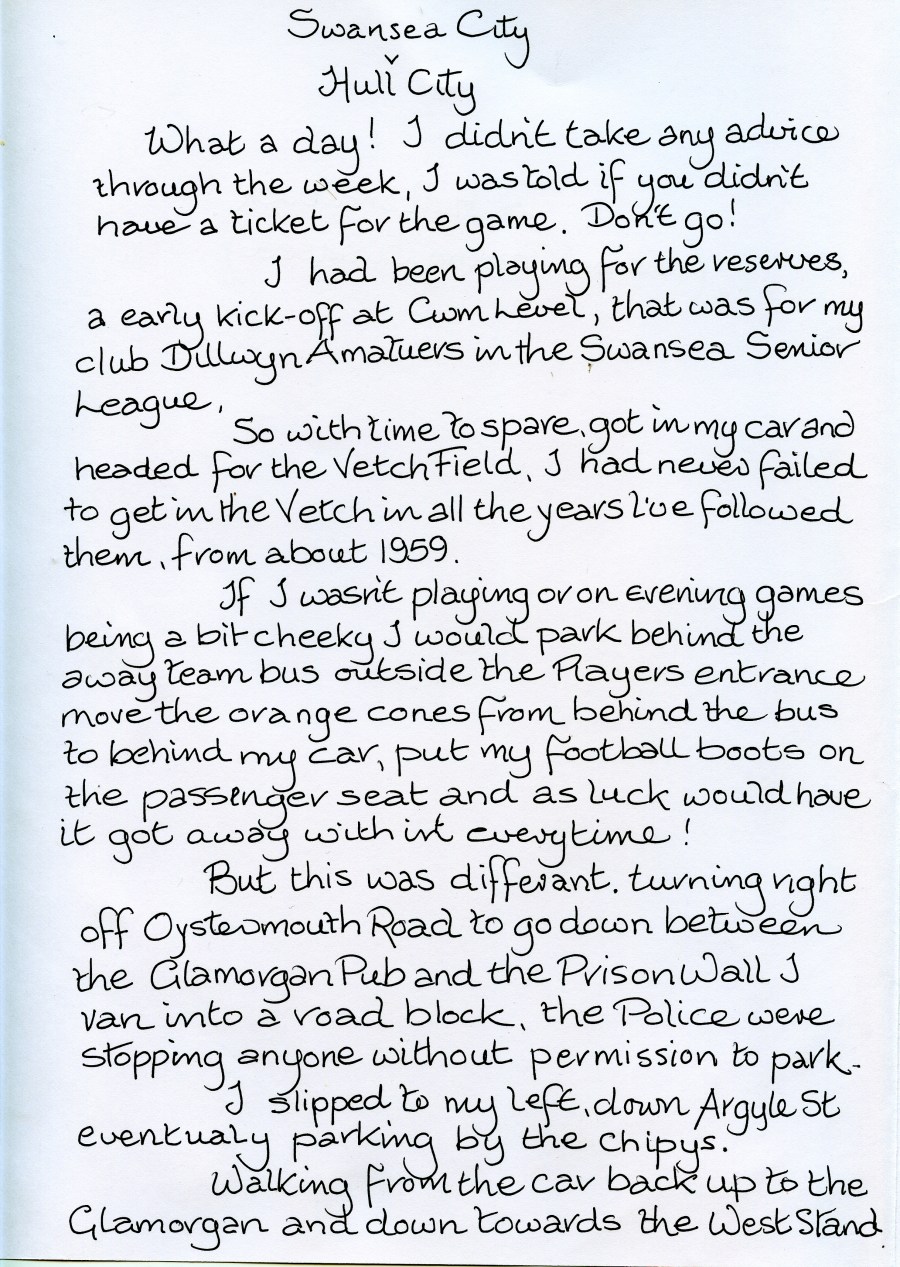 Swansea City
v
Hull City
What a day! I didn't take any advice
through the week, I was told if you didn't
have a ticket for the game. Don't go!
I had been playing for the reserves,
a early kick-off at Cwm Level, that was for my
club Dillwyn Amatuers in the Swansea Senior
League.
So with time to spare, got in my car and
headed for the Vetch Field, I had never failed
to get in the Vetch in all the years I've followed
them, from about 1959.
If I wasn't playing or on evening games
being a bit cheeky I would park behind the
away team bus outside the Players entrance
move the orange cones from behind the bus
to behind my car, put my football boots on
the passenger seat and as luck would have
it got away with int everytime!
But this was differant. turning right
off Oystermouth Road to go down between
the Glamorgan Pub and the Prison Wall I
ran into a road block, the Police were
stopping anyone without permission to park.
I slipped to my left, down Argyle St
eventualy parking by the chipys.
Walking from the car back up to the
Glamorgan and down towards the West Stand